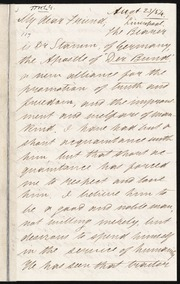 Aug 23/54
Liverpool.
My dear Friend,
The Bearer
is Dr Starson of Germany
the Apostle of Der Bund
a new alliance for the
promotion of truth and
freedom, and the improve
ment and welfare of man
Kind. I have had but a
short acquaintance with
him, but that short ac
quaintance has forced
me to respect and love
him. I believe him to
be a good and noble man
not willing merely, but
desirous to spend himself
in the service of humanity.
He has seen that